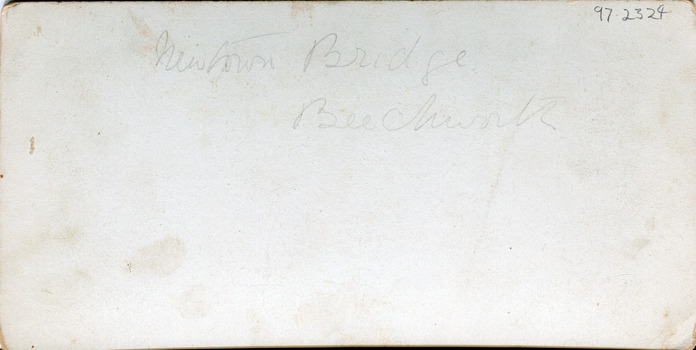 97.2324
Newtown Bridge
Beechworth